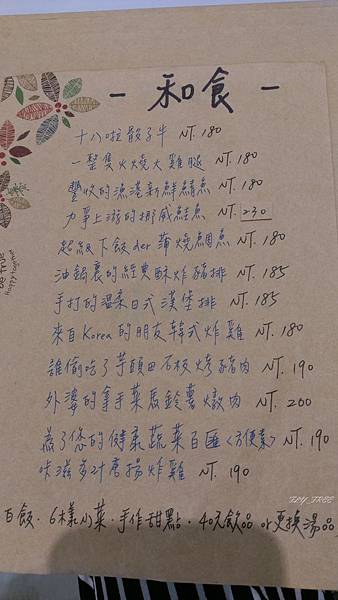 - 和食 -
十八啦骰子牛 NT.180
一整隻火燒大雞腿 NT.180
豐收的漁港新鮮鯖魚 NT.180
力爭上游的挪威鮭魚 NT.230
超級下飯der蒲燒鯛魚 NT.180
油鍋裏的經典酥炸豬排 NT.185
手打的溫柔日式漢堡排 NT.185
來自Korea的朋友韓式炸雞 NT.180
誰偷吃了芋頭田石板烤豬肉 NT.190
外婆的拿手菜馬鈴薯燉肉 NT.200
為了您的健康蔬菜百匯<方便素> NT.190
咔滋多汁唐揚炸雞 NT.190
白飯．6樣小菜．手作甜點．40元飲品 or更換湯品
be true
Happy Together
FLY FREE